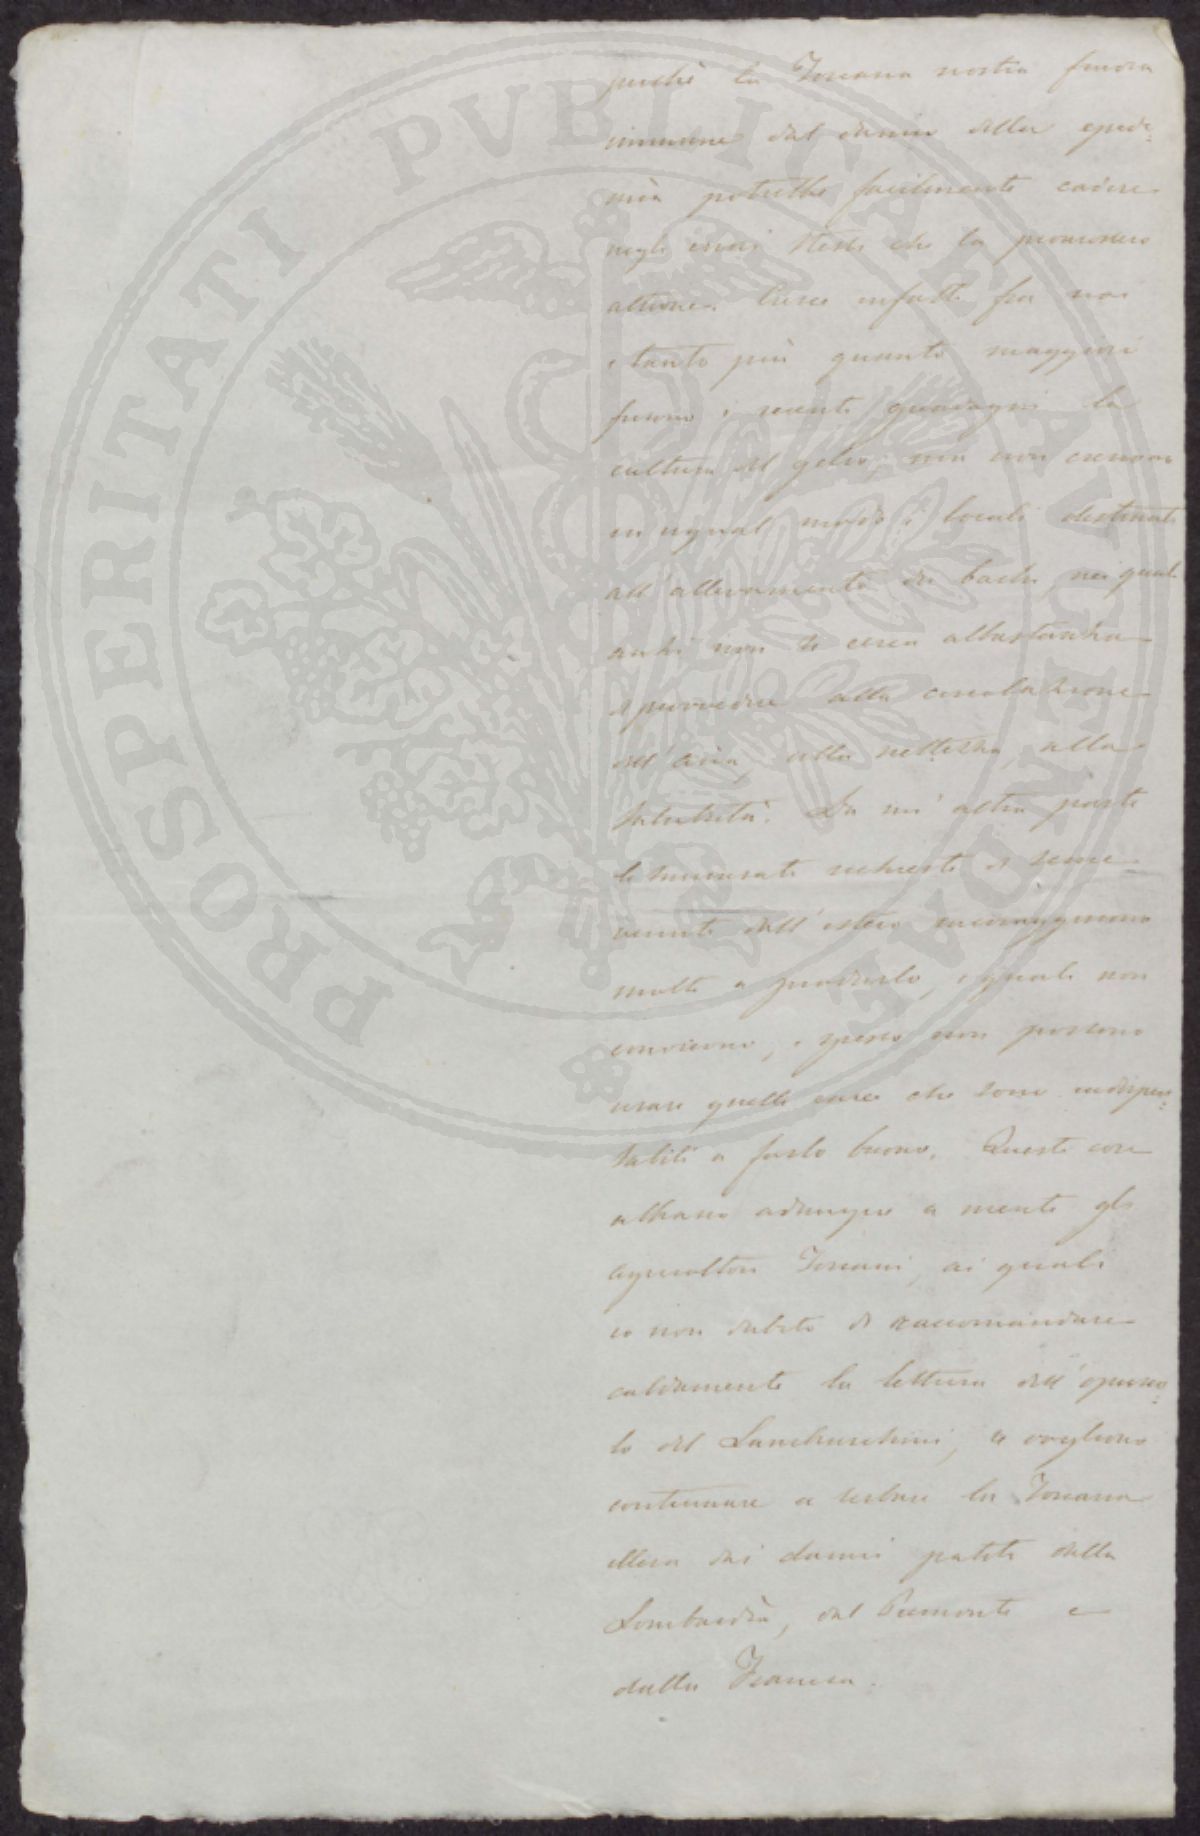 perchè la Toscana nostra finora
immune dal danno della epide=
mia potrebbe facilmente cadere
negli errori stessi che la promossero
altrove. Cresce infatti fra noi
e tanto più quanto maggiori
furono i recenti guadagni la
cultura del gelso, ma non crescono
in ugual modo i locali destinati
all'allevamento dei bachi, nei quali
anzi non si cerca abbastanza
di provvedere alla circolazione
dell'aria, alla nettezza, alla
salubrità. Da un'altra parte
le richieste di seme
venute dall'estero incoraggiano
molti a produrlo, i quali non
conoscono, e spesso non possono
usare quelle cure che sono indispen=
sabili a farlo buono. Queste cose
abbiano adunque a mente gli
agricoltori Toscani, ai quali
io non dubito di raccomandare
caldamente la lettura dell'opusco=
lo del Lambruschini, se vogliono
continuare a serbare la Toscana
illesa dai danni patiti dalla
Lombardia, dal Piemonte e
dalla Francia.
PROSPERITATI PVBLICAE AVGENDAE